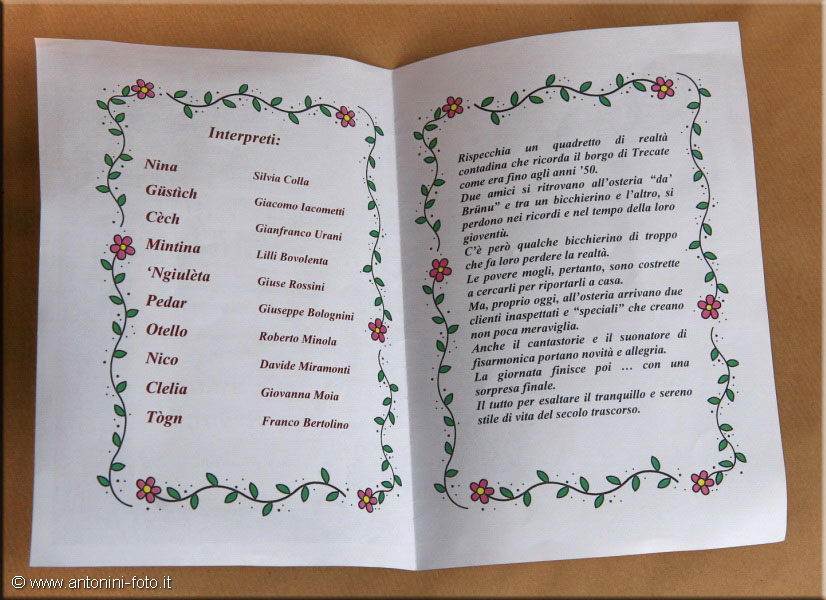 Interpreti:
Nina Silvia Colla
Güstìch Giacomo Iacometti
Cèch Gianfranco Urani
Mintina Lilli Bovolenta
‘Ngiulèta Giuse Rossini
Pedar Giuseppe Bolognini
Otello Roberto Minola
Nico Davide Miramonti
Clelia Giovanna Moia
Tògn Franco Bertolino
Rispecchia un quadretto di realtà
contadina che ricorda il borgo di Trecate
come era fino agli anni ’50.
Due amici si ritrovano all’osteria “da’
Brünu” e tra un bicchierino e l’altro, si
perdono nei ricordi e nel tempo della loro
gioventù.
C’è però qualche bicchierino di troppo
che fa loro perdere la realtà.
Le povere mogli, pertanto, sono costrette
a cercarli per riportarli a casa.
Ma, proprio oggi, all’osteria arrivano due
clienti inaspettati e “speciali” che creano
non poca meraviglia.
Anche il cantastorie e il suonatore di
fisarmonica portano novità e allegria.
La giornata finisce poi … con una
sorpresa finale.
Il tutto per esaltare il tranquillo e sereno
stile di vita del secolo trascorso.
© www.antonini-foto.it